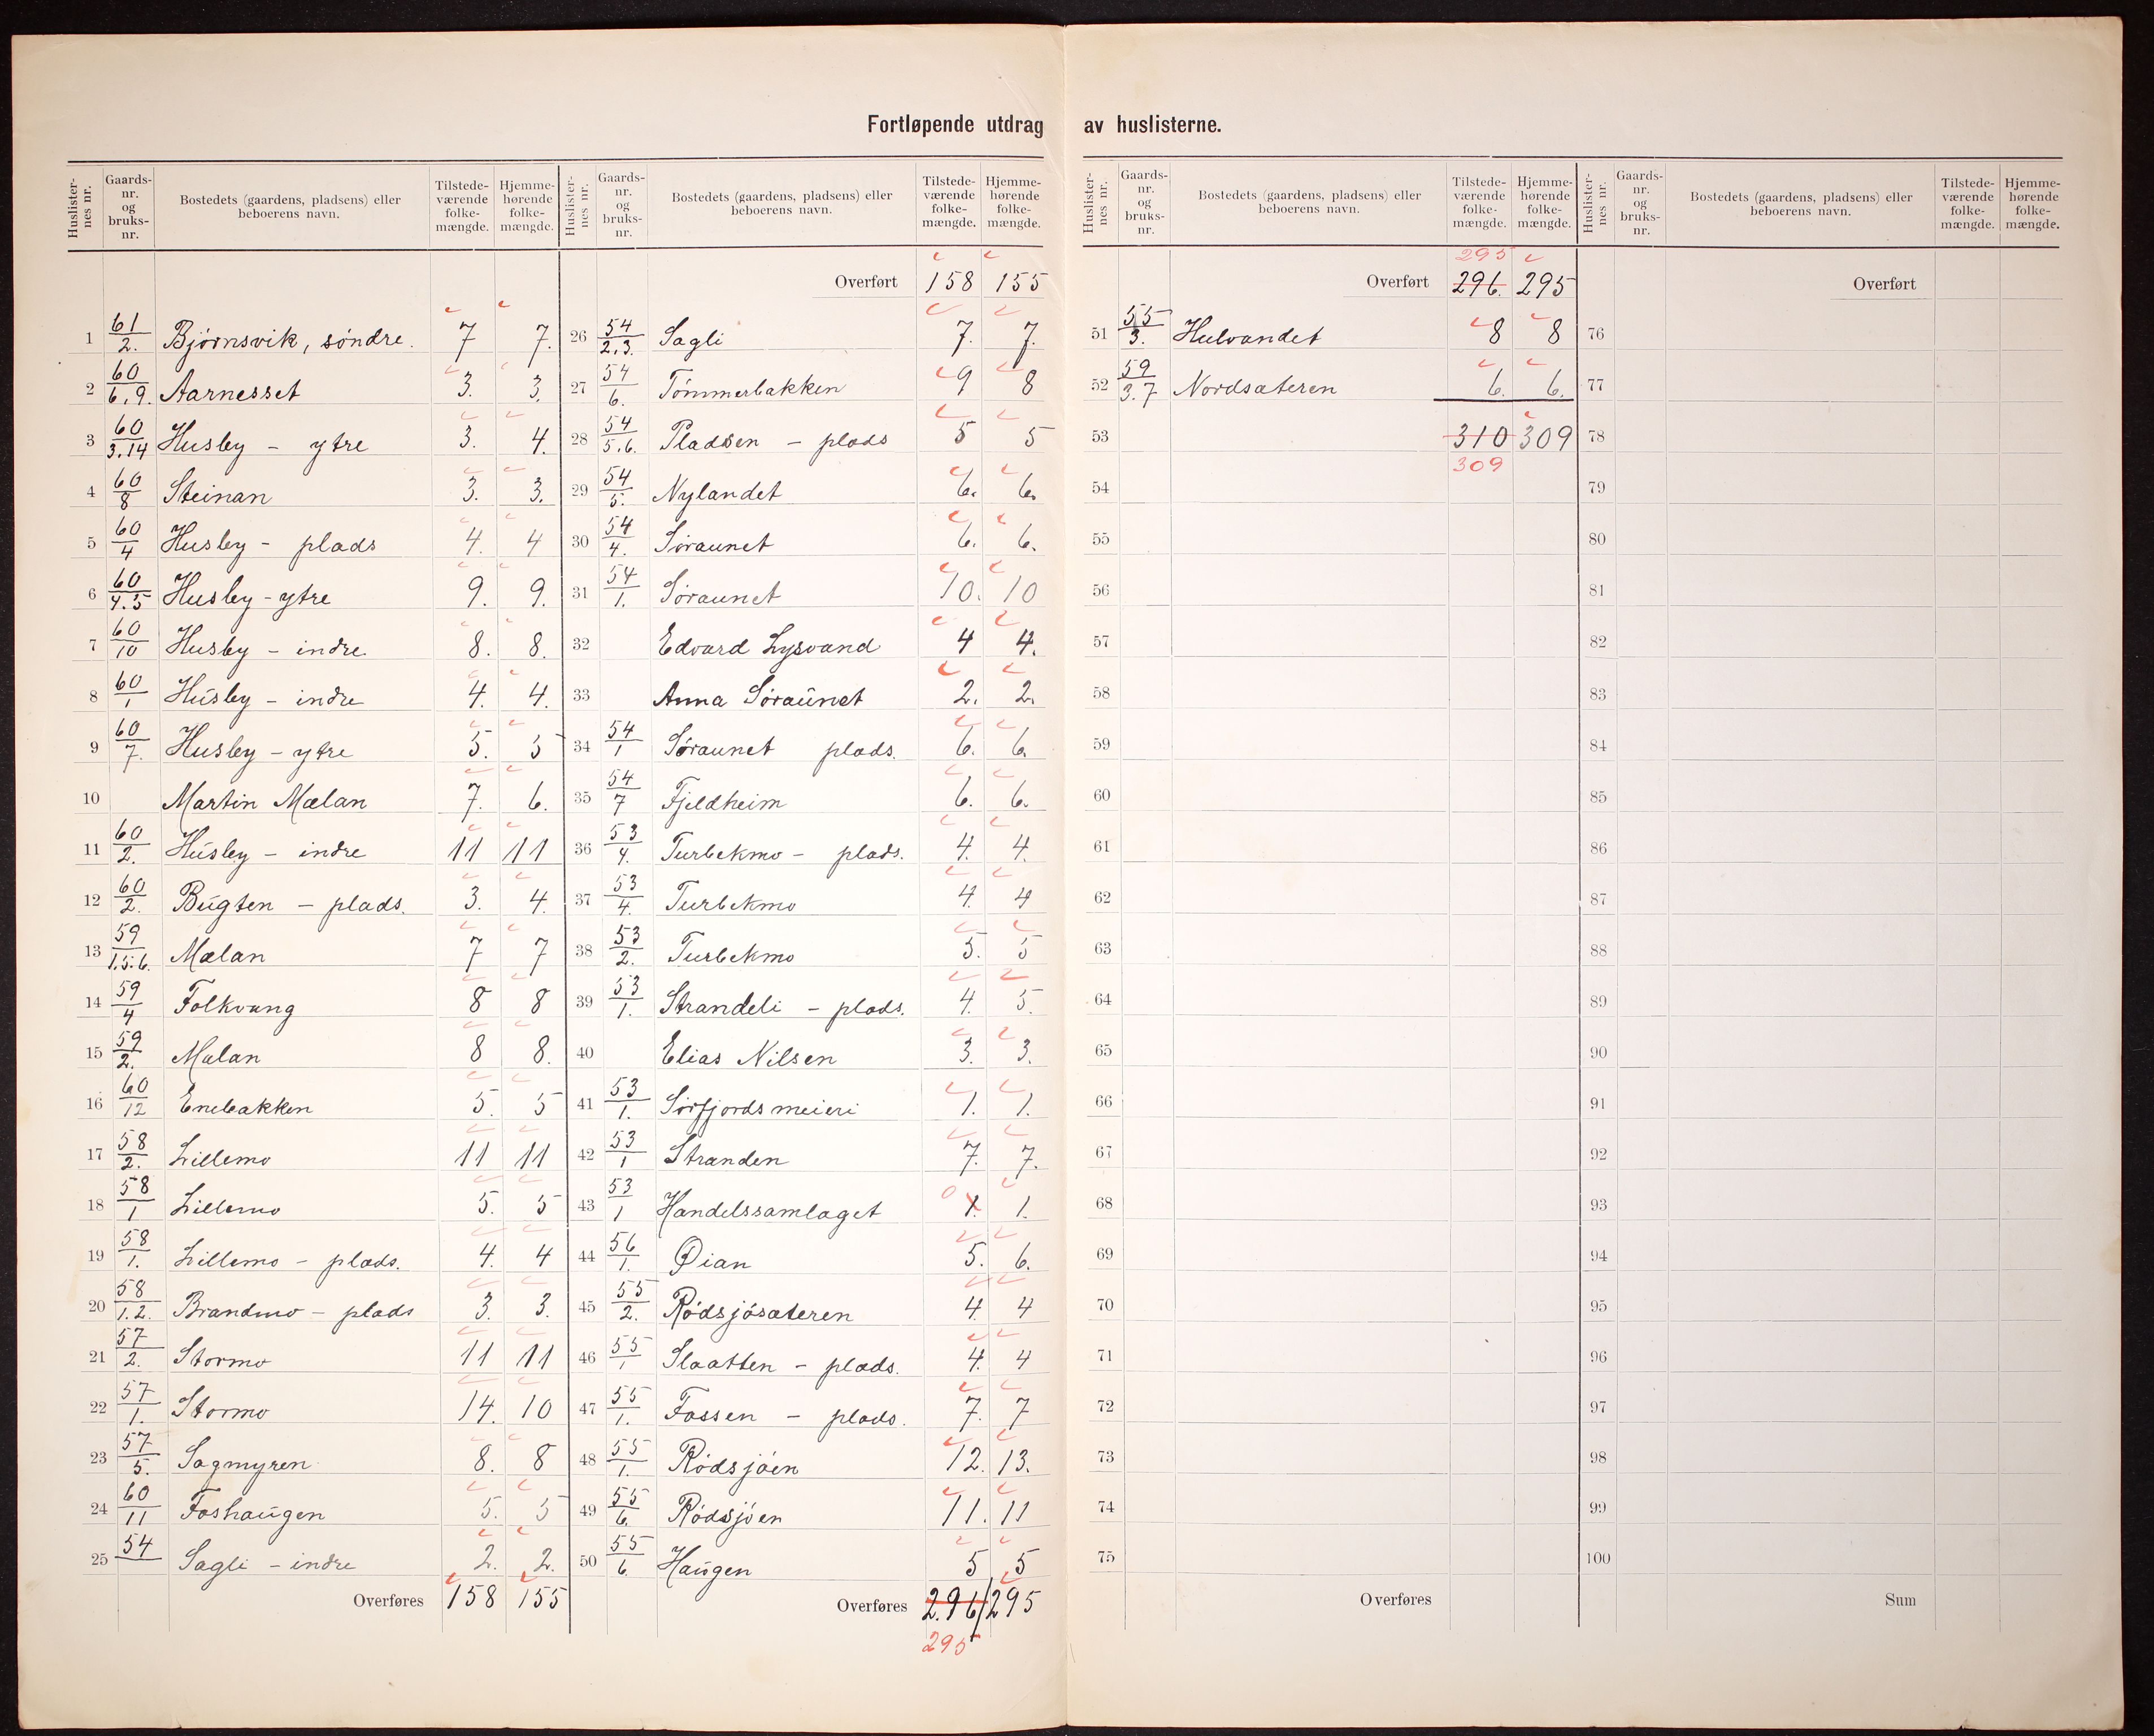 Fortløpende utdrag av huslisterne.
Huslisternes nr. | Gaardsnr. og bruksnr. | Bostedets (gaardens, pladsens) eller beboerens navn. | Tilstedeværende folkemængde. | Hjemmehørende folkemængde.
1 61/2. Bjørnsvik, søndre. 7 7.
2 60/6,9. Aarnesset 3. 3.
3 60/3.14 Husby - ytre 3. 4.
4 60/8 Steinan 3. 3.
5 60/4 Husby - plads 4. 4
6 60/4.5 Husby - ytre 9. 9.
7 60/10 Husby - indre 8. 8.
8 60/1 Husby - indre 4. 4.
9 60/7. Husby - ytre 5. 5
10 Martin Mælan 7. 6.
11 60/2. Husby - indre 11 11
12 60/2. Bugten - plads. 3. 4.
13 59/1.5.6. Mælan 7 7
14 59/4 Folkvang 8 8
15 59/2. Mælan 8 8.
16 60/12 Enebakken 5. 5
17 58/2. Lillemo 11 11
18 58/1 Lillemo 5. 5
19 58/1. Lillemo - plads. 4. 4
20 58/1.2. Brandmo - plads 3. 3.
21 57/2. Stormo 11 11
22 57/1. Stormo 14. 10
23 57/5. Sagmyren 8. 8
24 60/11 Foshaugen 5. 5
25 54/ Sagli - indre 2. 2.
Overføres 158 155
Huslisternes nr. | Gaardsnr. og bruksnr. | Bostedets (gaardens, pladsens) eller beboerens navn. | Tilstedeværende folkemængde. | Hjemmehørende folkemængde.
Overført 158 155
26 54/2,3. Sagli 7. 7.
27 54/6. Tømmerbakken 9 8
28 54/5.6. Pladsen - plads 5 5
29 54/5. Nylandet 6. 6.
30 54/4. Søraunet 6. 6.
31 54/1. Søraunet 10. 10
32 Edvard Lysvand 4 4.
33 Anna Søraunet 2. 2.
34 54/1 Søraunet plads. 6. 6.
35 54/7 Fjeldheim 6. 6.
36 53/4. Turbekmo - plads. 4. 4.
37 53/4. Turbekmo 4. 4
38 53/2. Turbekmo 5. 5
39 53/1. Strandeli - plads. 4. 5.
40 Elias Nilsen 3. 3.
41 53/1. Sørfjords meieri 1. 1.
42 53/1 Stranden 7. 7.
43 53/1 Handelssamlaget 0 1. 1.
44 56/1. Øian 5. 6.
45 55/2. Rødsjøsæteren 4. 4
46 55/1 Slaatten - plads. 4. 4
47 55/1. Fossen - plads. 7. 7
48 55/1. Rødsjøen 12. 13.
49 55/6. Rødsjøen 11. 11
50 55/6 Haugen 5 5
Overføres 296 295
295
Huslisternes nr. | Gaardsnr. og bruksnr. | Bostedets (gaardens, pladsens) eller beboerens navn. | Tilstedeværende folkemængde. | Hjemmehørende folkemængde.
295
Overført 296. 295
51 55/3. Hulvandet 8 8
52 59/3.7 Nordsæteren 6. 6.
53 310 309
309
54
55
56
57
58
59
60
61
62
63
64
65
66
67
68
69
70
71
72
73
74
75
Overføres
Huslisternes nr. | Gaardsnr. og bruksnr. | Bostedets (gaardens, pladsens) eller beboerens navn. | Tilstedeværende folkemængde. | Hjemmehørende folkemængde.
Overført
76
77
78
79
80
81
82
83
84
85
86
87
88
89
90
91
92
93
94
95
96
97
98
99
100
Sum